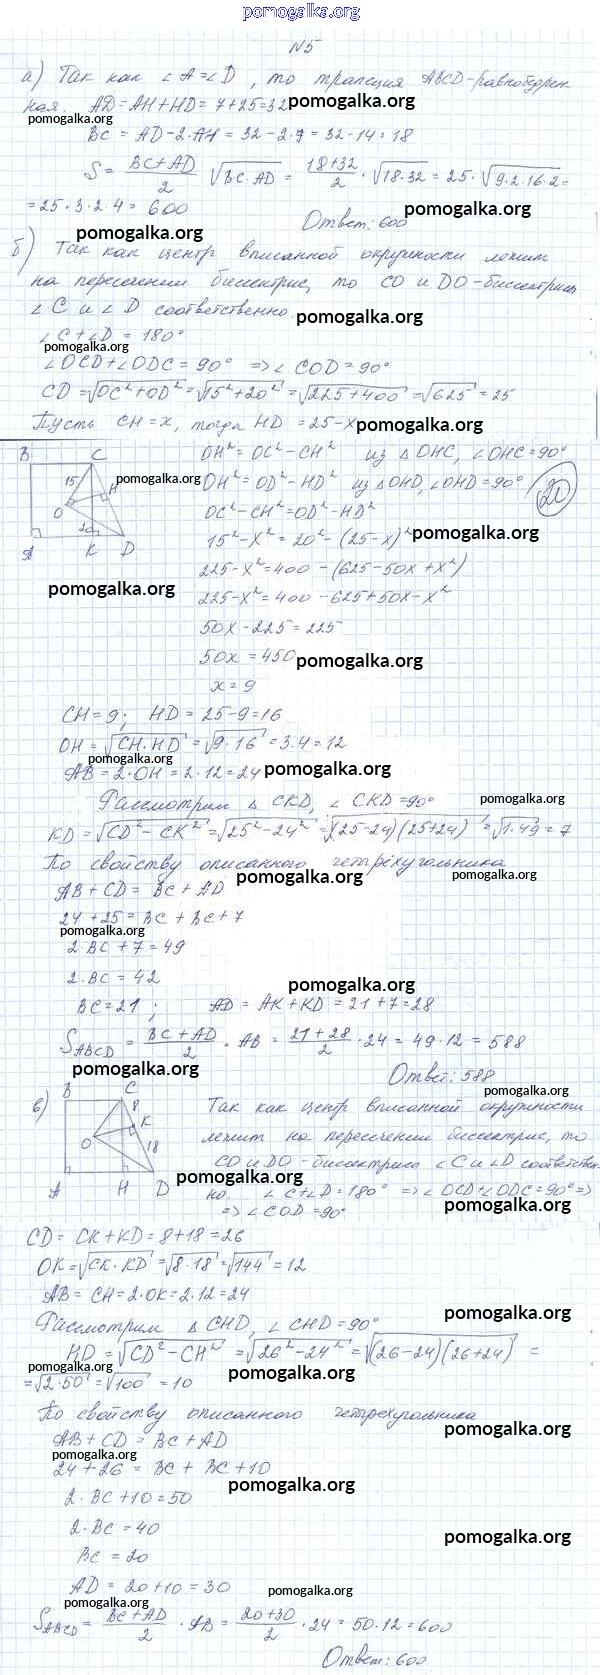 pomogalka.org
№5
а) Так как ∠A=∠D, то трапеция ABCD-равнобедрен-
ная. AD=AH+HD=7+25=32 pomogalka.org
pomogalka.org
BC = AD-2·AH = 32-2·7 = 32-14=18
S = (BC+AD)/2 · √(BC·AD) = (18+32)/2 · √(18·32) = 25·√(9·2·16·2) =
= 25·3·2·4 = 600 pomogalka.org
pomogalka.org Ответ: 600
б) Так как центр вписанной окружности лежит
на пересечении биссектрис, то CO и DO-биссектрисы
∠C и ∠D соответственно. pomogalka.org
∠C+∠D = 180°
pomogalka.org
∠OCD+∠ODC = 90° ⇒ ∠COD=90°
CD=√(OC²+OD²)=√(15²+20²)=√(225+400)=√625=25
Пусть CH=x, тогда HD=25-x pomogalka.org
B C OH²=OC²-CH² из △OHC, ∠OHC=90°
15 H pomogalka.org OH²=OD²-HD² из △OHD, ∠OHD=90°
O OC²-CH²=OD²-HD²
20
A K D 15²-x²=20²-(25-x)² pomogalka.org
225-x²=400-(625-50x+x²)
pomogalka.org
225-x²=400-625+50x-x²
50x-225=225
50x=450 pomogalka.org
x=9
CH=9; HD=25-9=16
OH=√(CH·HD)=√(9·16)=3·4=12
pomogalka.org
AB=2·OH=2·12=24 pomogalka.org
Рассмотрим △CKD, ∠CKD=90° pomogalka.org
KD=√(CD²-CK²)=√(25²-24²)=√((25-24)(25+24))=√(1·49)=7
По свойству описанного четырёхугольника
pomogalka.org pomogalka.org
AB+CD=BC+AD
24+25=BC+BC+7
pomogalka.org
2·BC+7=49
2·BC=42
pomogalka.org
BC=21; AD=AK+KD=21+7=28
S ABCD = (BC+AD)/2 · AB = (21+28)/2 · 24 = 49·12 = 588
pomogalka.org Ответ: 588
pomogalka.org
в) B C Так как центр вписанной окружности
8 K лежит на пересечении биссектрис, то
O 18 CO и DO-биссектрисы ∠C и ∠D соответствен-
A H D pomogalka.org но. ∠C+∠D=180° ⇒ ∠OCD+∠ODC=90° ⇒
⇒ ∠COD=90° pomogalka.org
CD=CK+KD=8+18=26
OK=√(CK·KD)=√(8·18)=√144=12
AB=CH=2·OK=2·12=24
pomogalka.org
Рассмотрим △CHD, ∠CHD=90°
HD=√(CD²-CH²)=√(26²-24²)=√((26-24)(26+24)) =
pomogalka.org pomogalka.org
=√(2·50)=√100=10
По свойству описанного четырехугольника
pomogalka.org
AB+CD=BC+AD
pomogalka.org
24+26=BC+BC+10
pomogalka.org
2·BC+10=50
2·BC=40
pomogalka.org
BC=20
AD=20+10=30
pomogalka.org
S ABCD = (BC+AD)/2 · AB = (20+30)/2 · 24 = 50·12=600
pomogalka.org
Ответ: 600